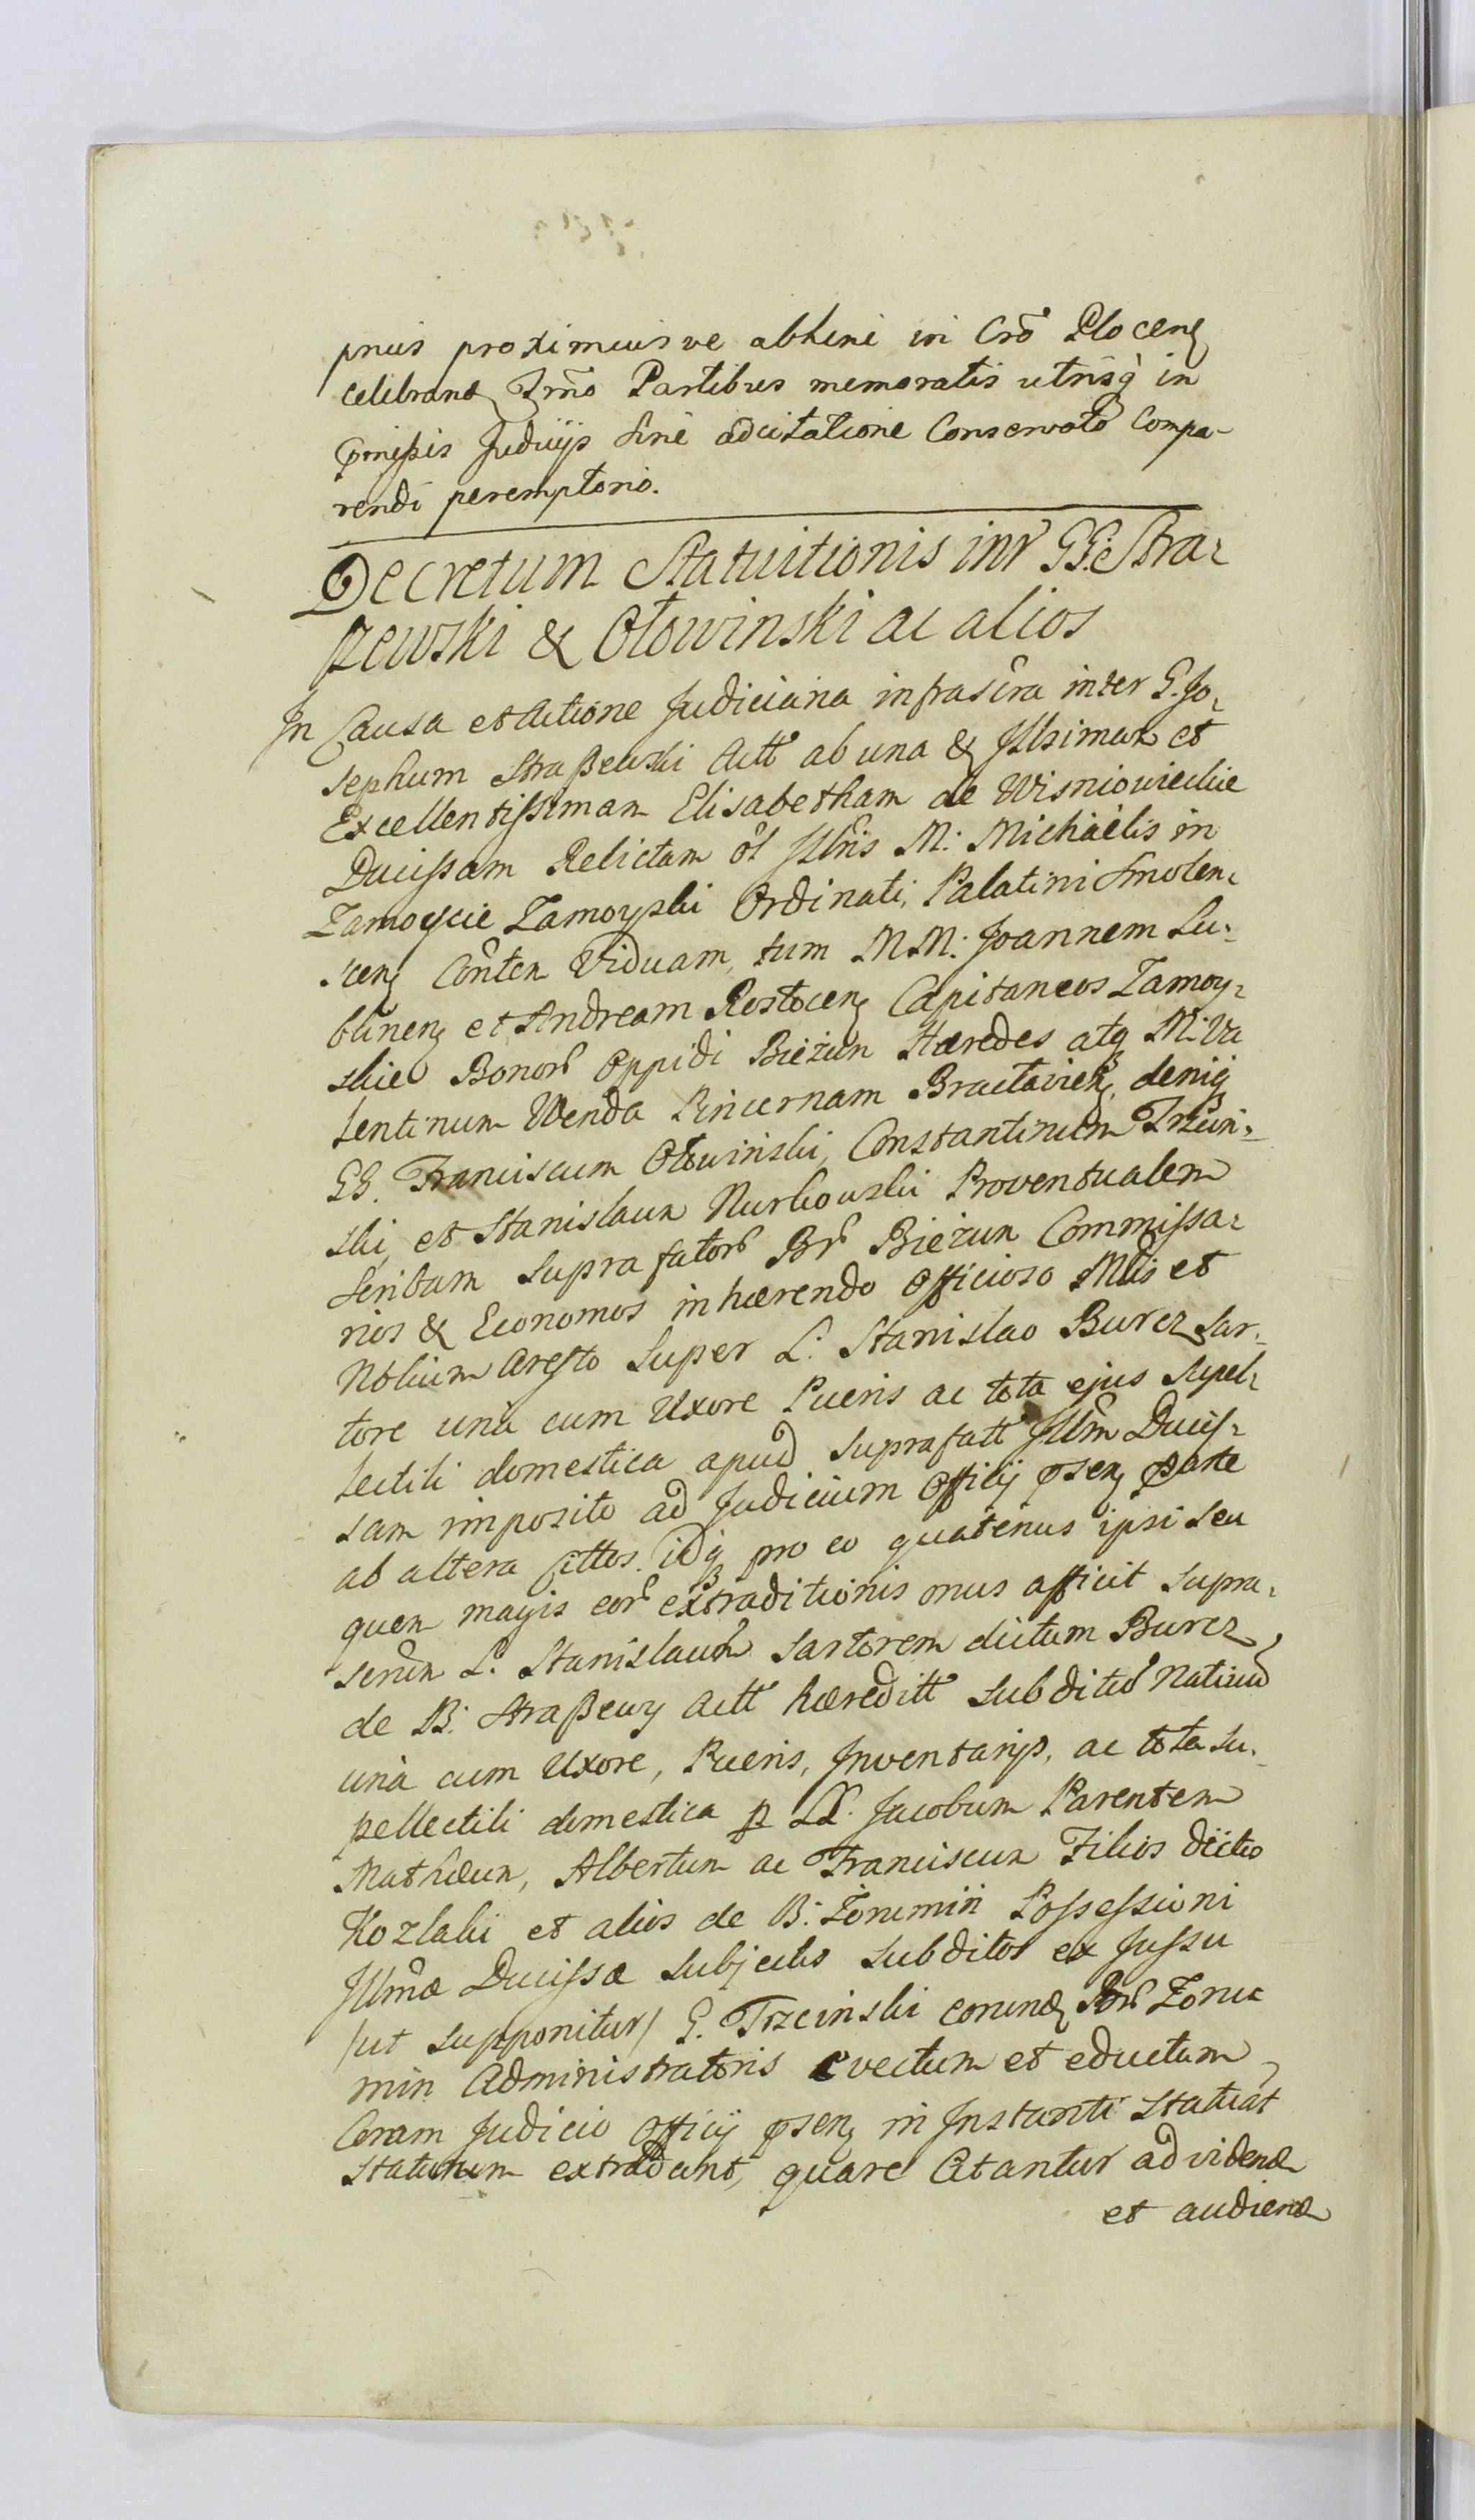 prius proximiusve abhinc in Crõ Plocen
celebrand Trm̃o Partibus memoratis utrisq in
p̃missis Judicijs sine adcitatione Conservato Compa-
rendi peremptorio.
Decretum Statuitionis intr GG: Stra-
szewski & Ołowinski ac alios
In Causa et Actione Judiciaria infrascra inter G. Jo-
sephum Straszewski Actt ab una & Illsimam et
Excellentissimam Elisabetham de Wisniowieckie
Ducissam Relictam ol Illris M: Michaelis in
Zamoyscie Zamoyski Ordinati, Palatini Smolen-
scen Conten Viduam, tum MM: Joannem Lu-
blinen et Andream Rostocen Capitaneos Zamoy-
skie Bonor Oppidi Bieżun Hæredes atq M: Va
lentinum Wenda Pincernam Braclavien, deniq
GG. Franciscum Ołowinski, Constantinum Trzcin-
ski, et Stanislaum Nurkowski Proventualem
Scribam suprafator Br Bieżun Commissa-
rios & Economos inhærendo Officioso Mtis et
Nobilium Aresto super L: Stanislao Burcz Sar-
tore una cum Uxore Pueris ac tota ejus supel-
lectili domestica apud suprafatt Illm Ducis-
sam imposito ad Judicium Officij psen parte
ab altera Cittos. idq pro eo quatenus ipsi seu
quem magis eor extraditionis onus afficit supra-
scrum L. Stanislaum Sartorem dictum Burcz
de B: Straszewy Actt hæreditt subditũ Nativũ
unà cum Uxore, Pueris, Inventarijs, ac tota su-
pellectili domestica p LL. Jacobum Parentem
Mathæum, Albertum ac Franciscum Filios dictos
Kozlaki et alios de B: Żoromin Possessioni
Illmæ Ducissæ subjectos subditos ex Jussu
/ut supponitur/ G. Trzcinski eorund Bor Żoro-
min Administratoris evectum et eductum
Coram Judicio Officij psen in Instanti statuat
statutum extradant, quare Citantur ad vidend
et audiend